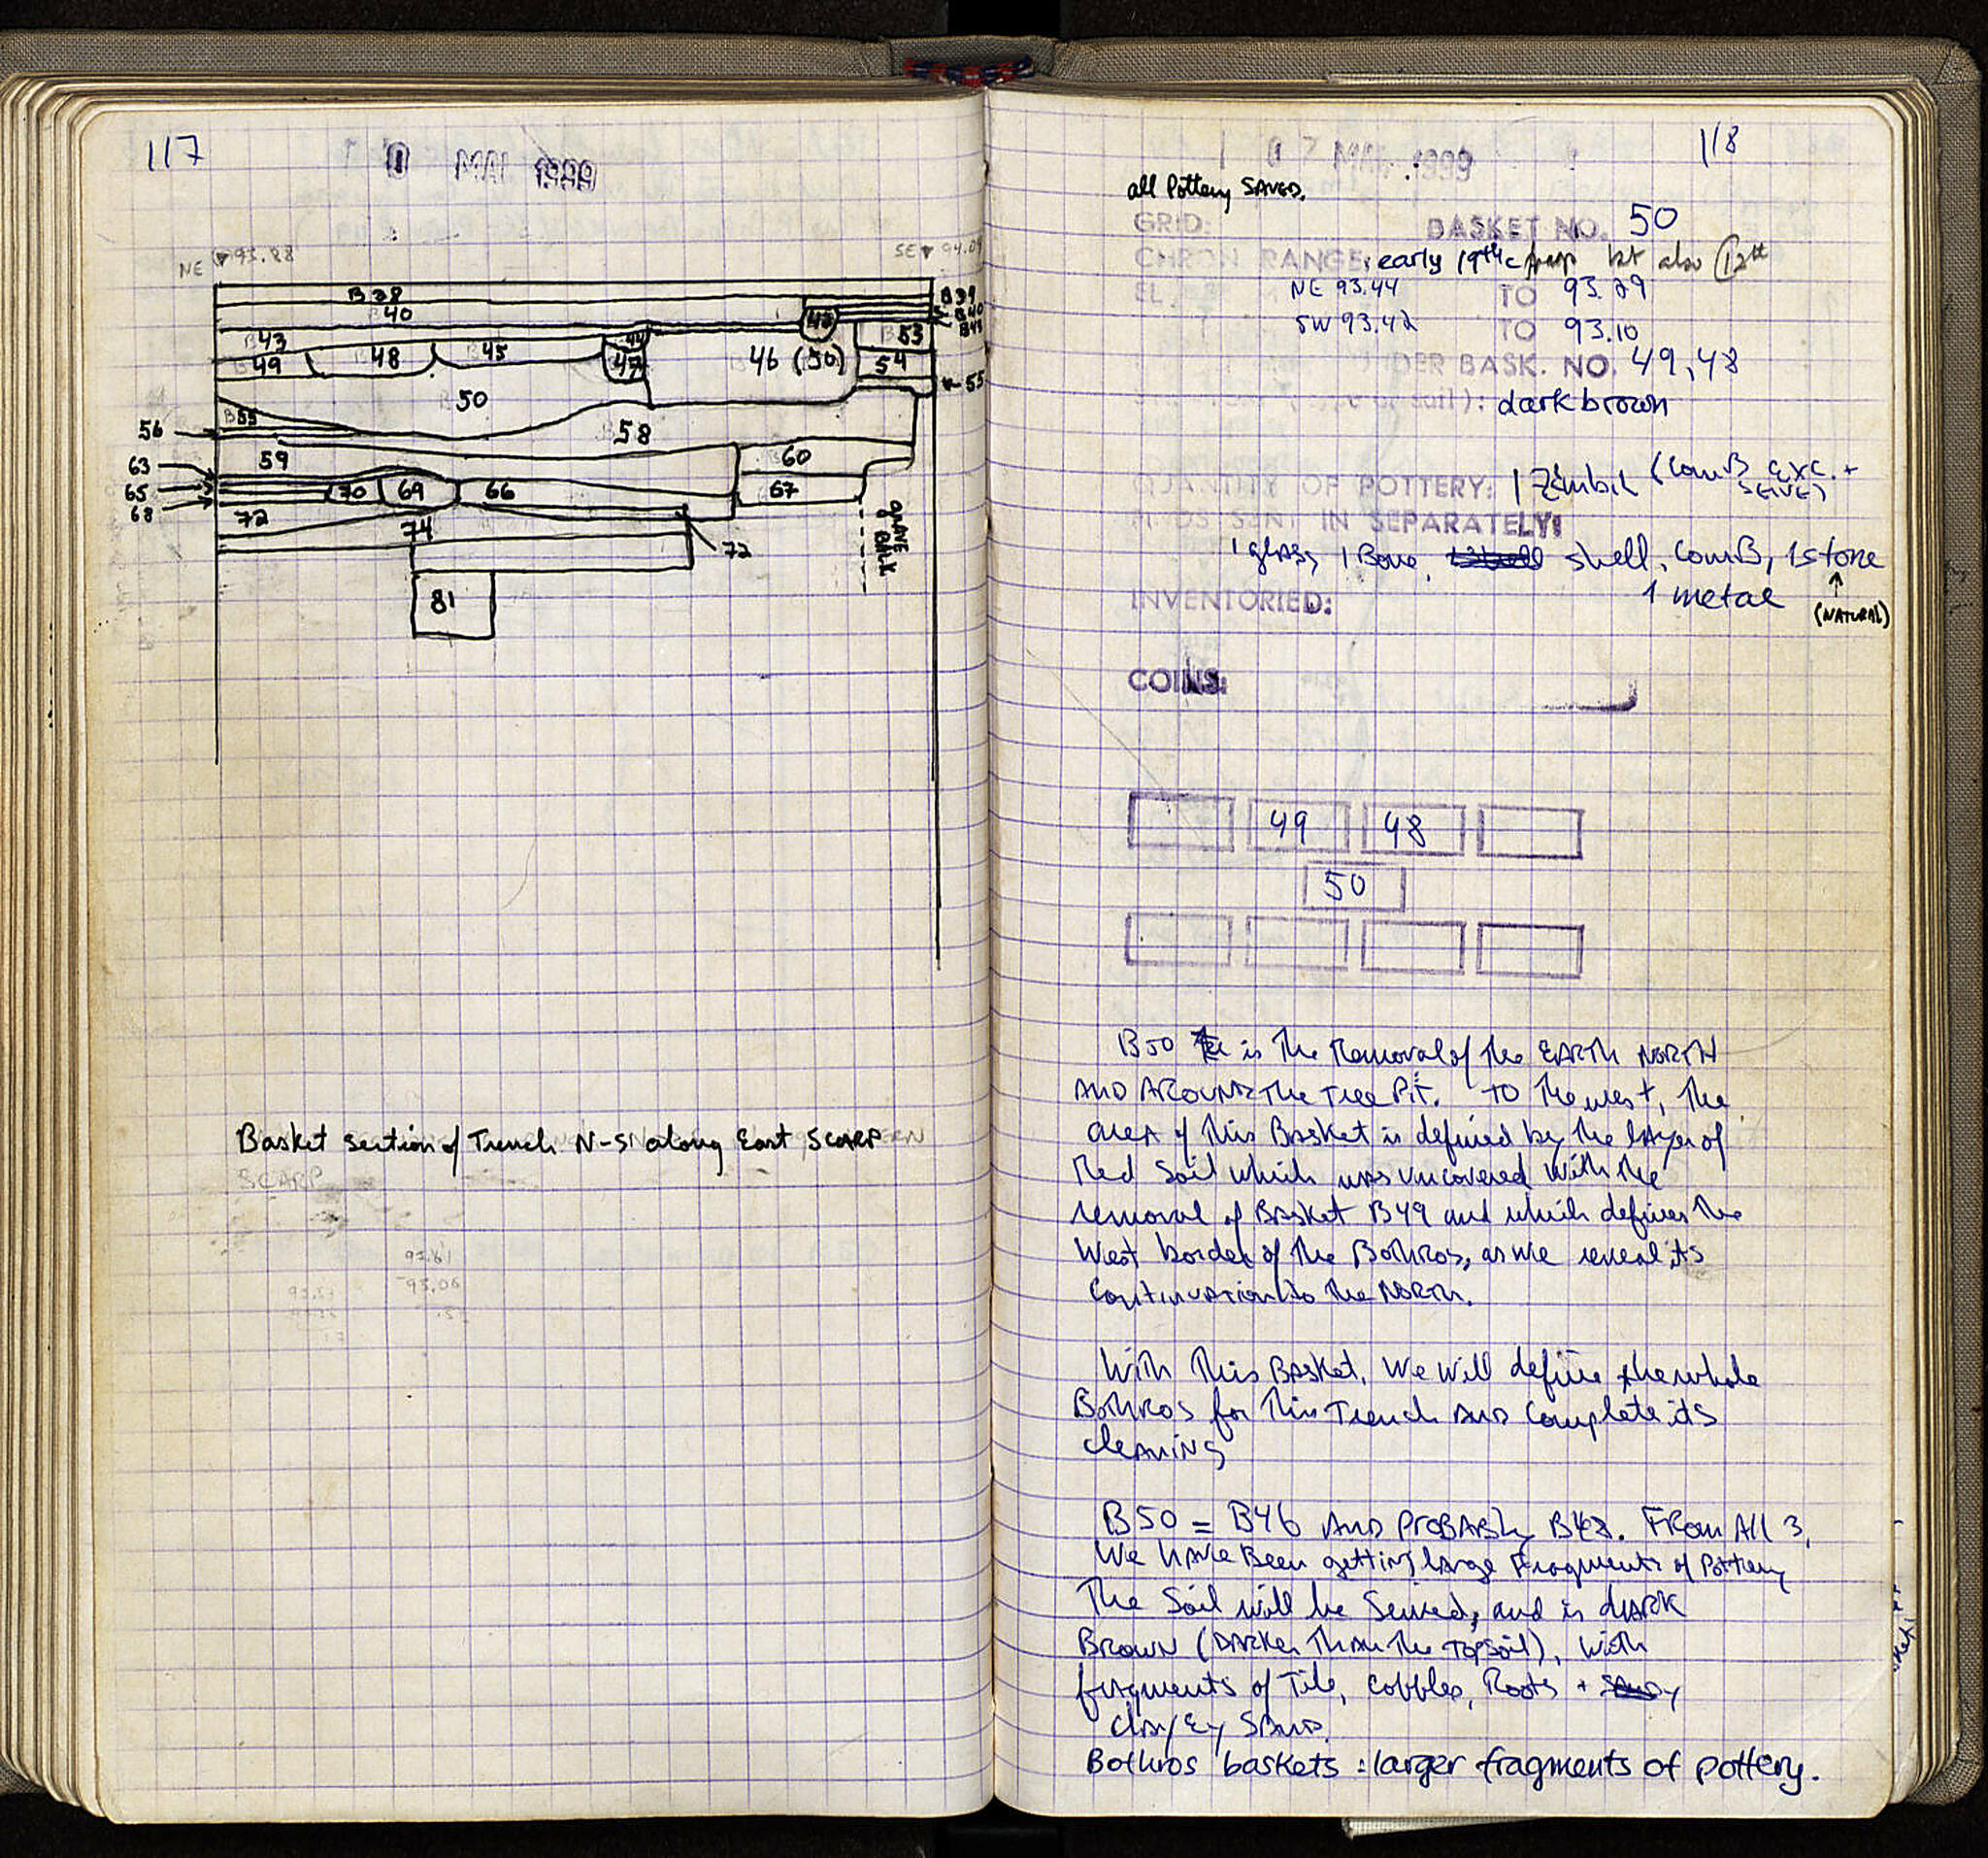 117
MAI 1999
NE 93.88
SE
B38
B39
40
B40
43
B43
53
49
48
45
47
46 (50)
54
55
50
B55
56
58
59
60
63
65
70
69
66
67
68
72
74
72
GRAVE
BALK
81
Basket section of Trench N-S along East SCARP
SCARP
93.06
118
1999
all Pottery SAVED.
GRID:
BASKET NO. 50
CHRON RANGE: early 19th c but also 12th
EL. NE 93.44 TO 93.29
SW 93.42 TO 93.10
UNDER BASK. NO. 49,48
dark brown
QUANTITY OF POTTERY: 1 Zimbil (ComB exc. +
SEIVE)
FINDS SENT IN SEPARATELY:
1 glass, 1 Bone, shell, ComB, 1 stone
1 metal
(NATURAL)
INVENTORIED:
COINS:
49 48
50
B50 is the Removal of the EARTH NORTH
AND AROUND The Tree Pit. TO The west, The
area of this Basket is defined by the layer of
Red Soil which was uncovered with the
removal of Basket B49 and which defines the
West border of the Bothros, as we reveal its
Continuation to the NORTH.
With This Basket, We will define the whole
Bothros for this Trench AND Complete its
cleaning
B50 = B46 AND PROBABly B48. From All 3,
We have Been getting large Fragments of Pottery
The Soil will be Seived, and is dARK
BROWN (DARKer Than The TOPSoil), with
fragments of Tile, cobbles, Roots +
clayEy SAND.
Bothros baskets : larger fragments of pottery.